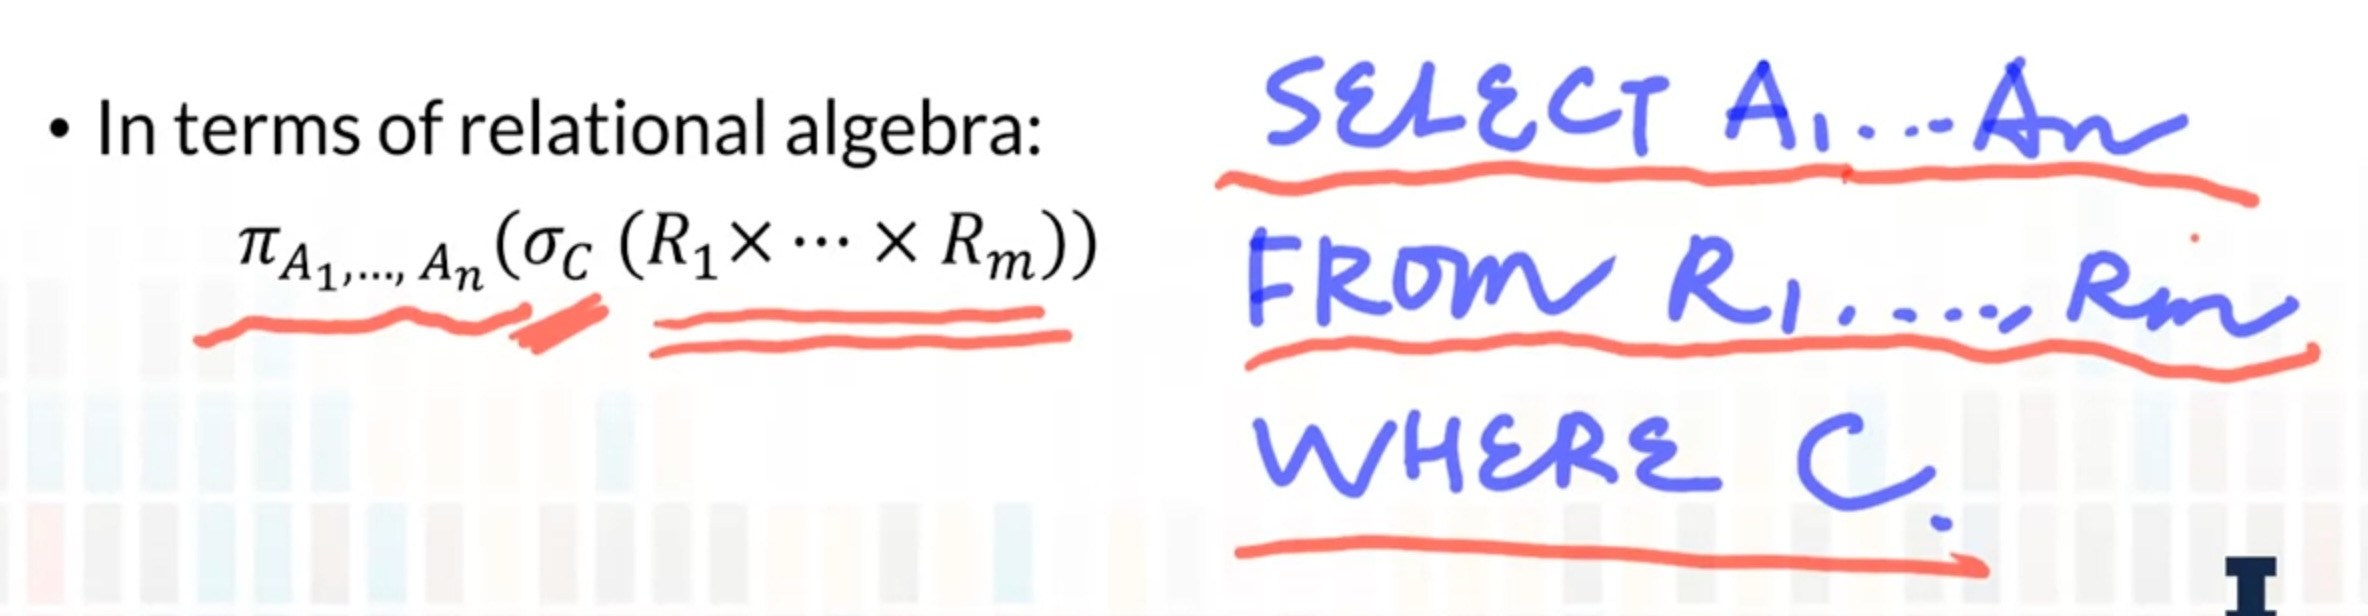 • In terms of relational algebra:
π_{A₁,…, Aₙ} (σ_C (R₁× ⋯ × Rₘ))
SELECT A₁...Aₙ
FROM R₁, ...., Rₘ
WHERE C.
I